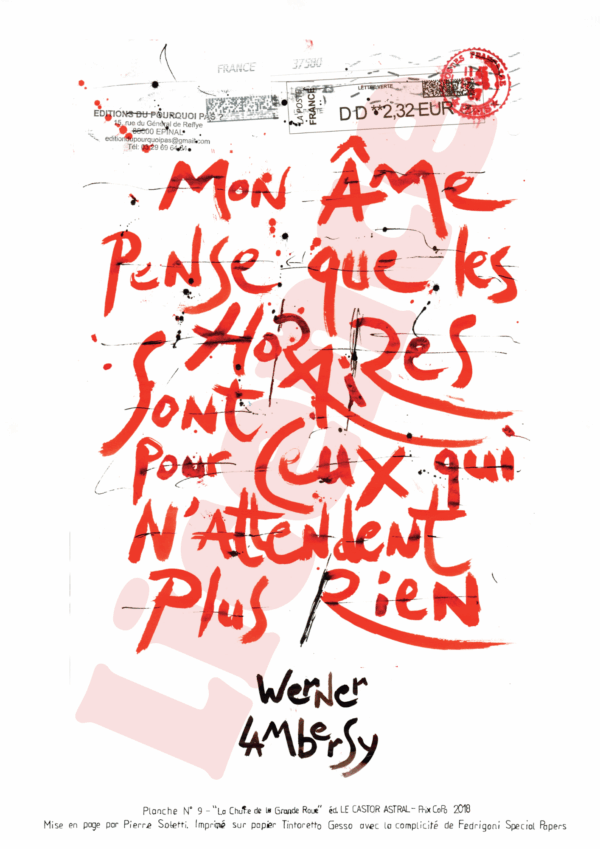 FRANCE 37580
LETTRE VERTE
LA POSTE
FRANCE
D·D **2,32 EUR
EDITIONS DU POURQUOI PAS
15, rue du Général de Reffye
88000 EPINAL
editiondupourquoipas@gmail.com
MON ÂMe
PeNSe que les
HORAIRes
SoNt
Pour Ceux qui
N'AtteNdent
Plus RieN
WerNer
LAMberSy
Planche N° 9 - "La Chute de la Grande Roue" éd. LE CASTOR ASTRAL - Prix CoPo 2018
Mise en page par Pierre Soletti. Imprimé sur papier Tintoretto Gesso avec la complicité de Fedrigoni Special Papers